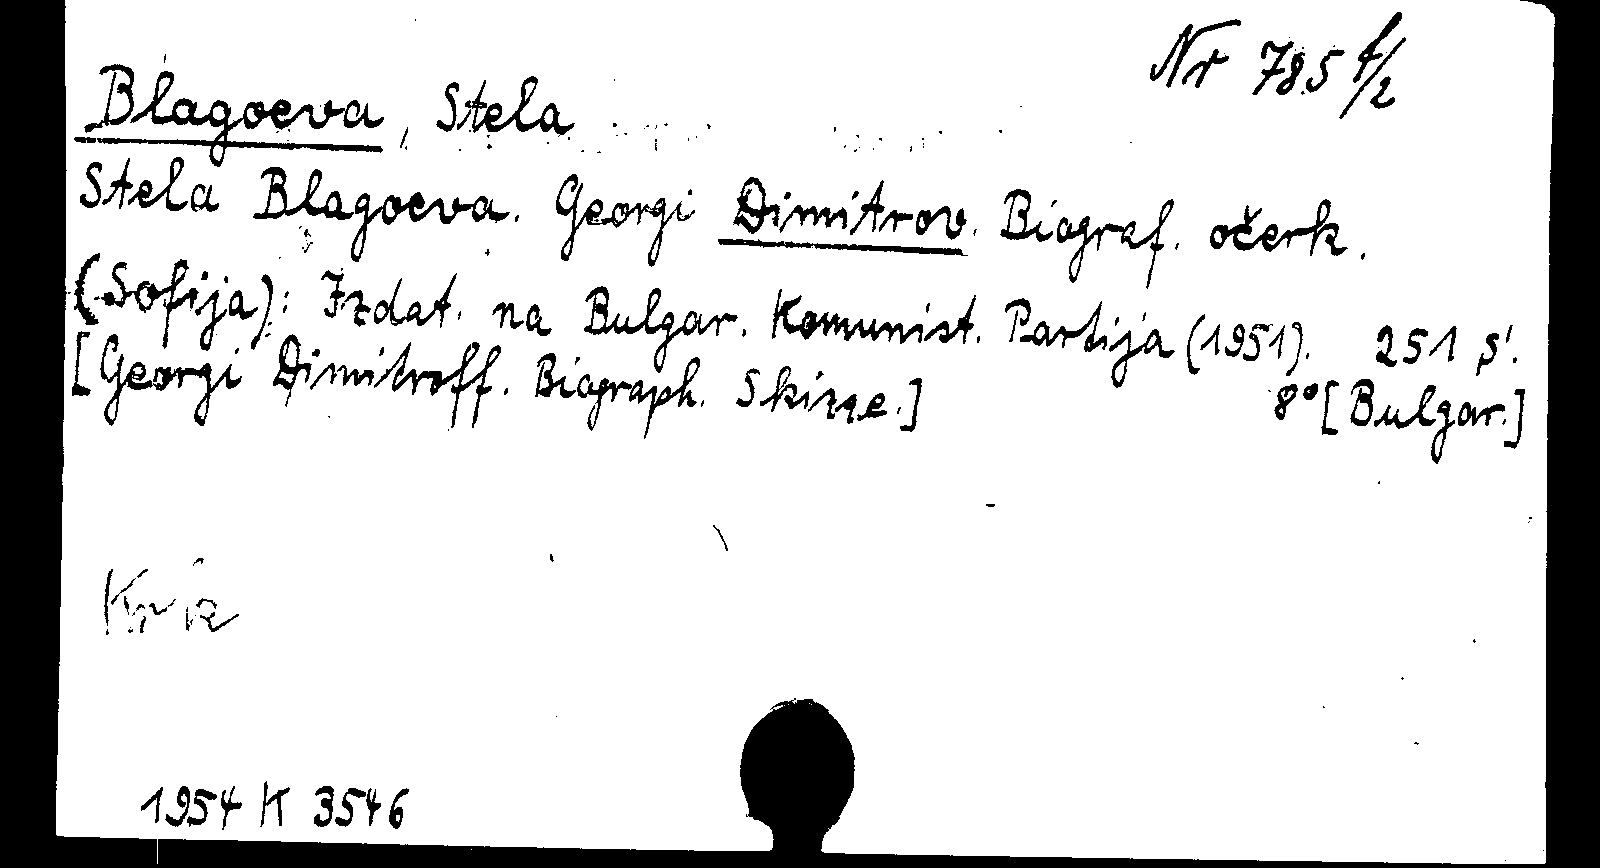 Nr 785 f/2
Blagoeva, Stela
Stela Blagoeva. Georgi Dimitrov. Biograf. očerk.
(Sofija): Izdat. na Bulgar. Komunist. Partija (1951). 251 S.
[Georgi Dimitroff. Biograph. Skizze.] 8° [Bulgar.]
1954 K 3546